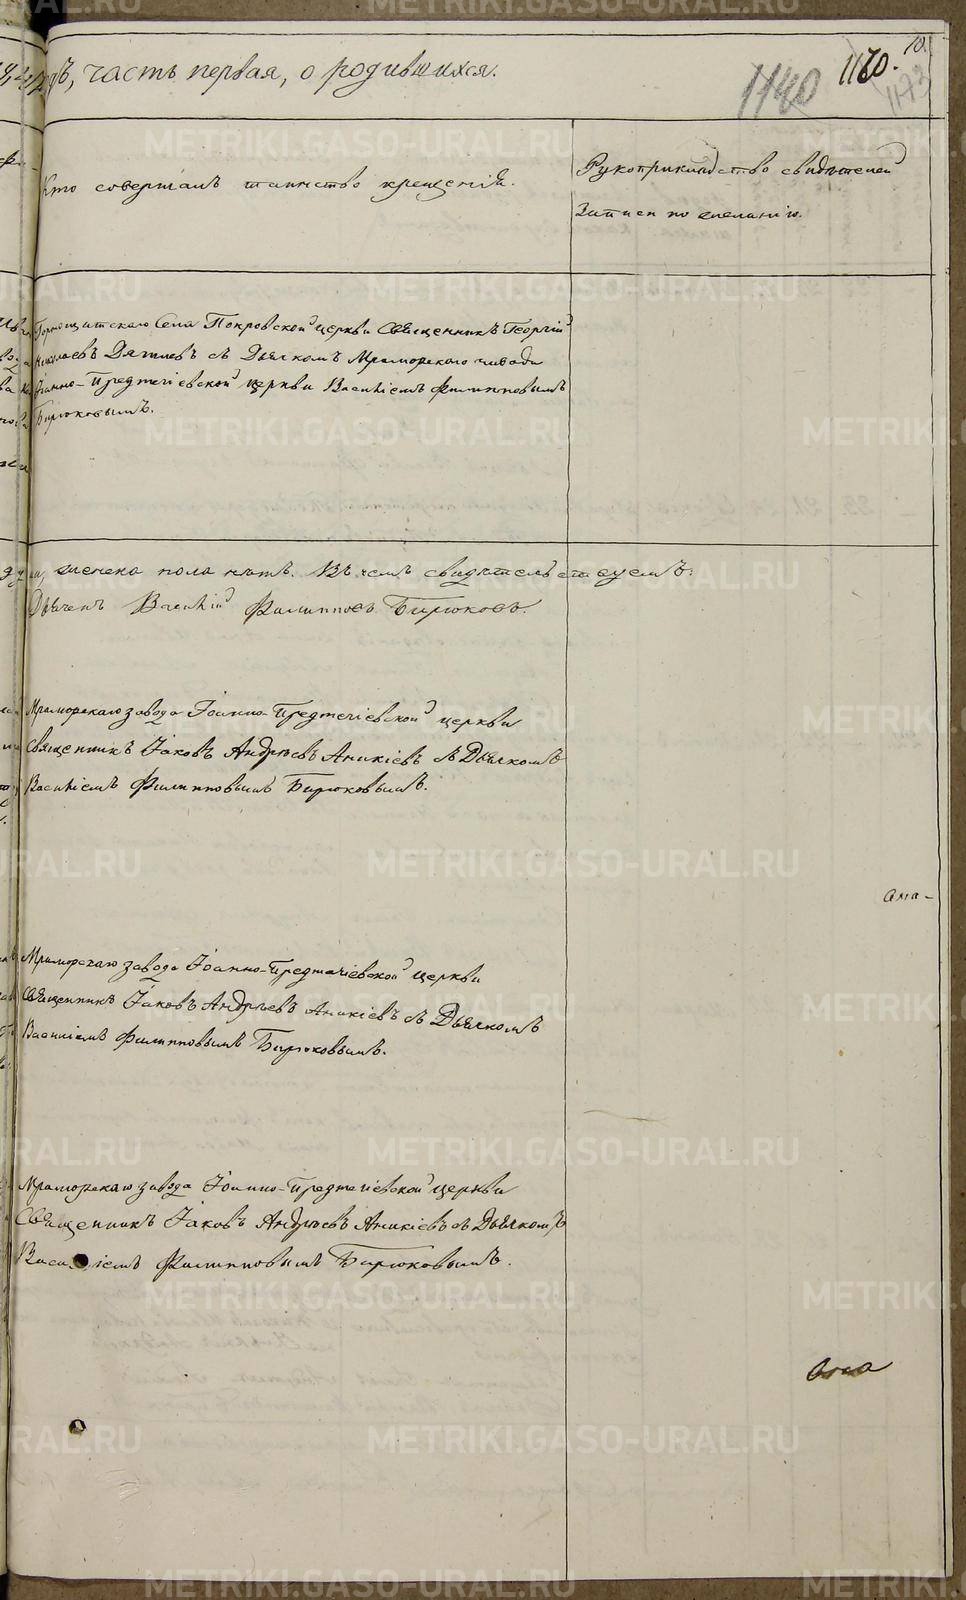 годъ, часть первая, о родившихся.
1140 1160. 10. 1173
Кто совершалъ таинство крещенія.
Рукоприкладство свидѣтелей
записи по желанію.
Горнощитскаго Села Покровской церкви Священникъ Георгій
Николаевъ съ Дьячкомъ Мраморскаго завода
Іоанно-Предтечіевской церкви Василіемъ Филипповымъ
Бирюковымъ.
женска пола нѣтъ. Въ чемъ свидѣтельствуемъ:
Дьячекъ Василій Филипповъ Бирюковъ.
Мраморскаго завода Іоанно-Предтечіевской церкви
Священникъ Іаковъ Андрѣевъ Аникіевъ съ Дьячкомъ
Василіемъ Филипповымъ Бирюковымъ.
Мраморскаго завода Іоанно-Предтечіевской церкви
Священникъ Іаковъ Андрѣевъ Аникіевъ съ Дьячкомъ
Василіемъ Филипповымъ Бирюковымъ.
Мраморскаго завода Іоанно-Предтечіевской церкви
Священникъ Іаковъ Андрѣевъ Аникіевъ съ Дьячкомъ
Василіемъ Филипповымъ Бирюковымъ.
METRIKI.GASO-URAL.RU